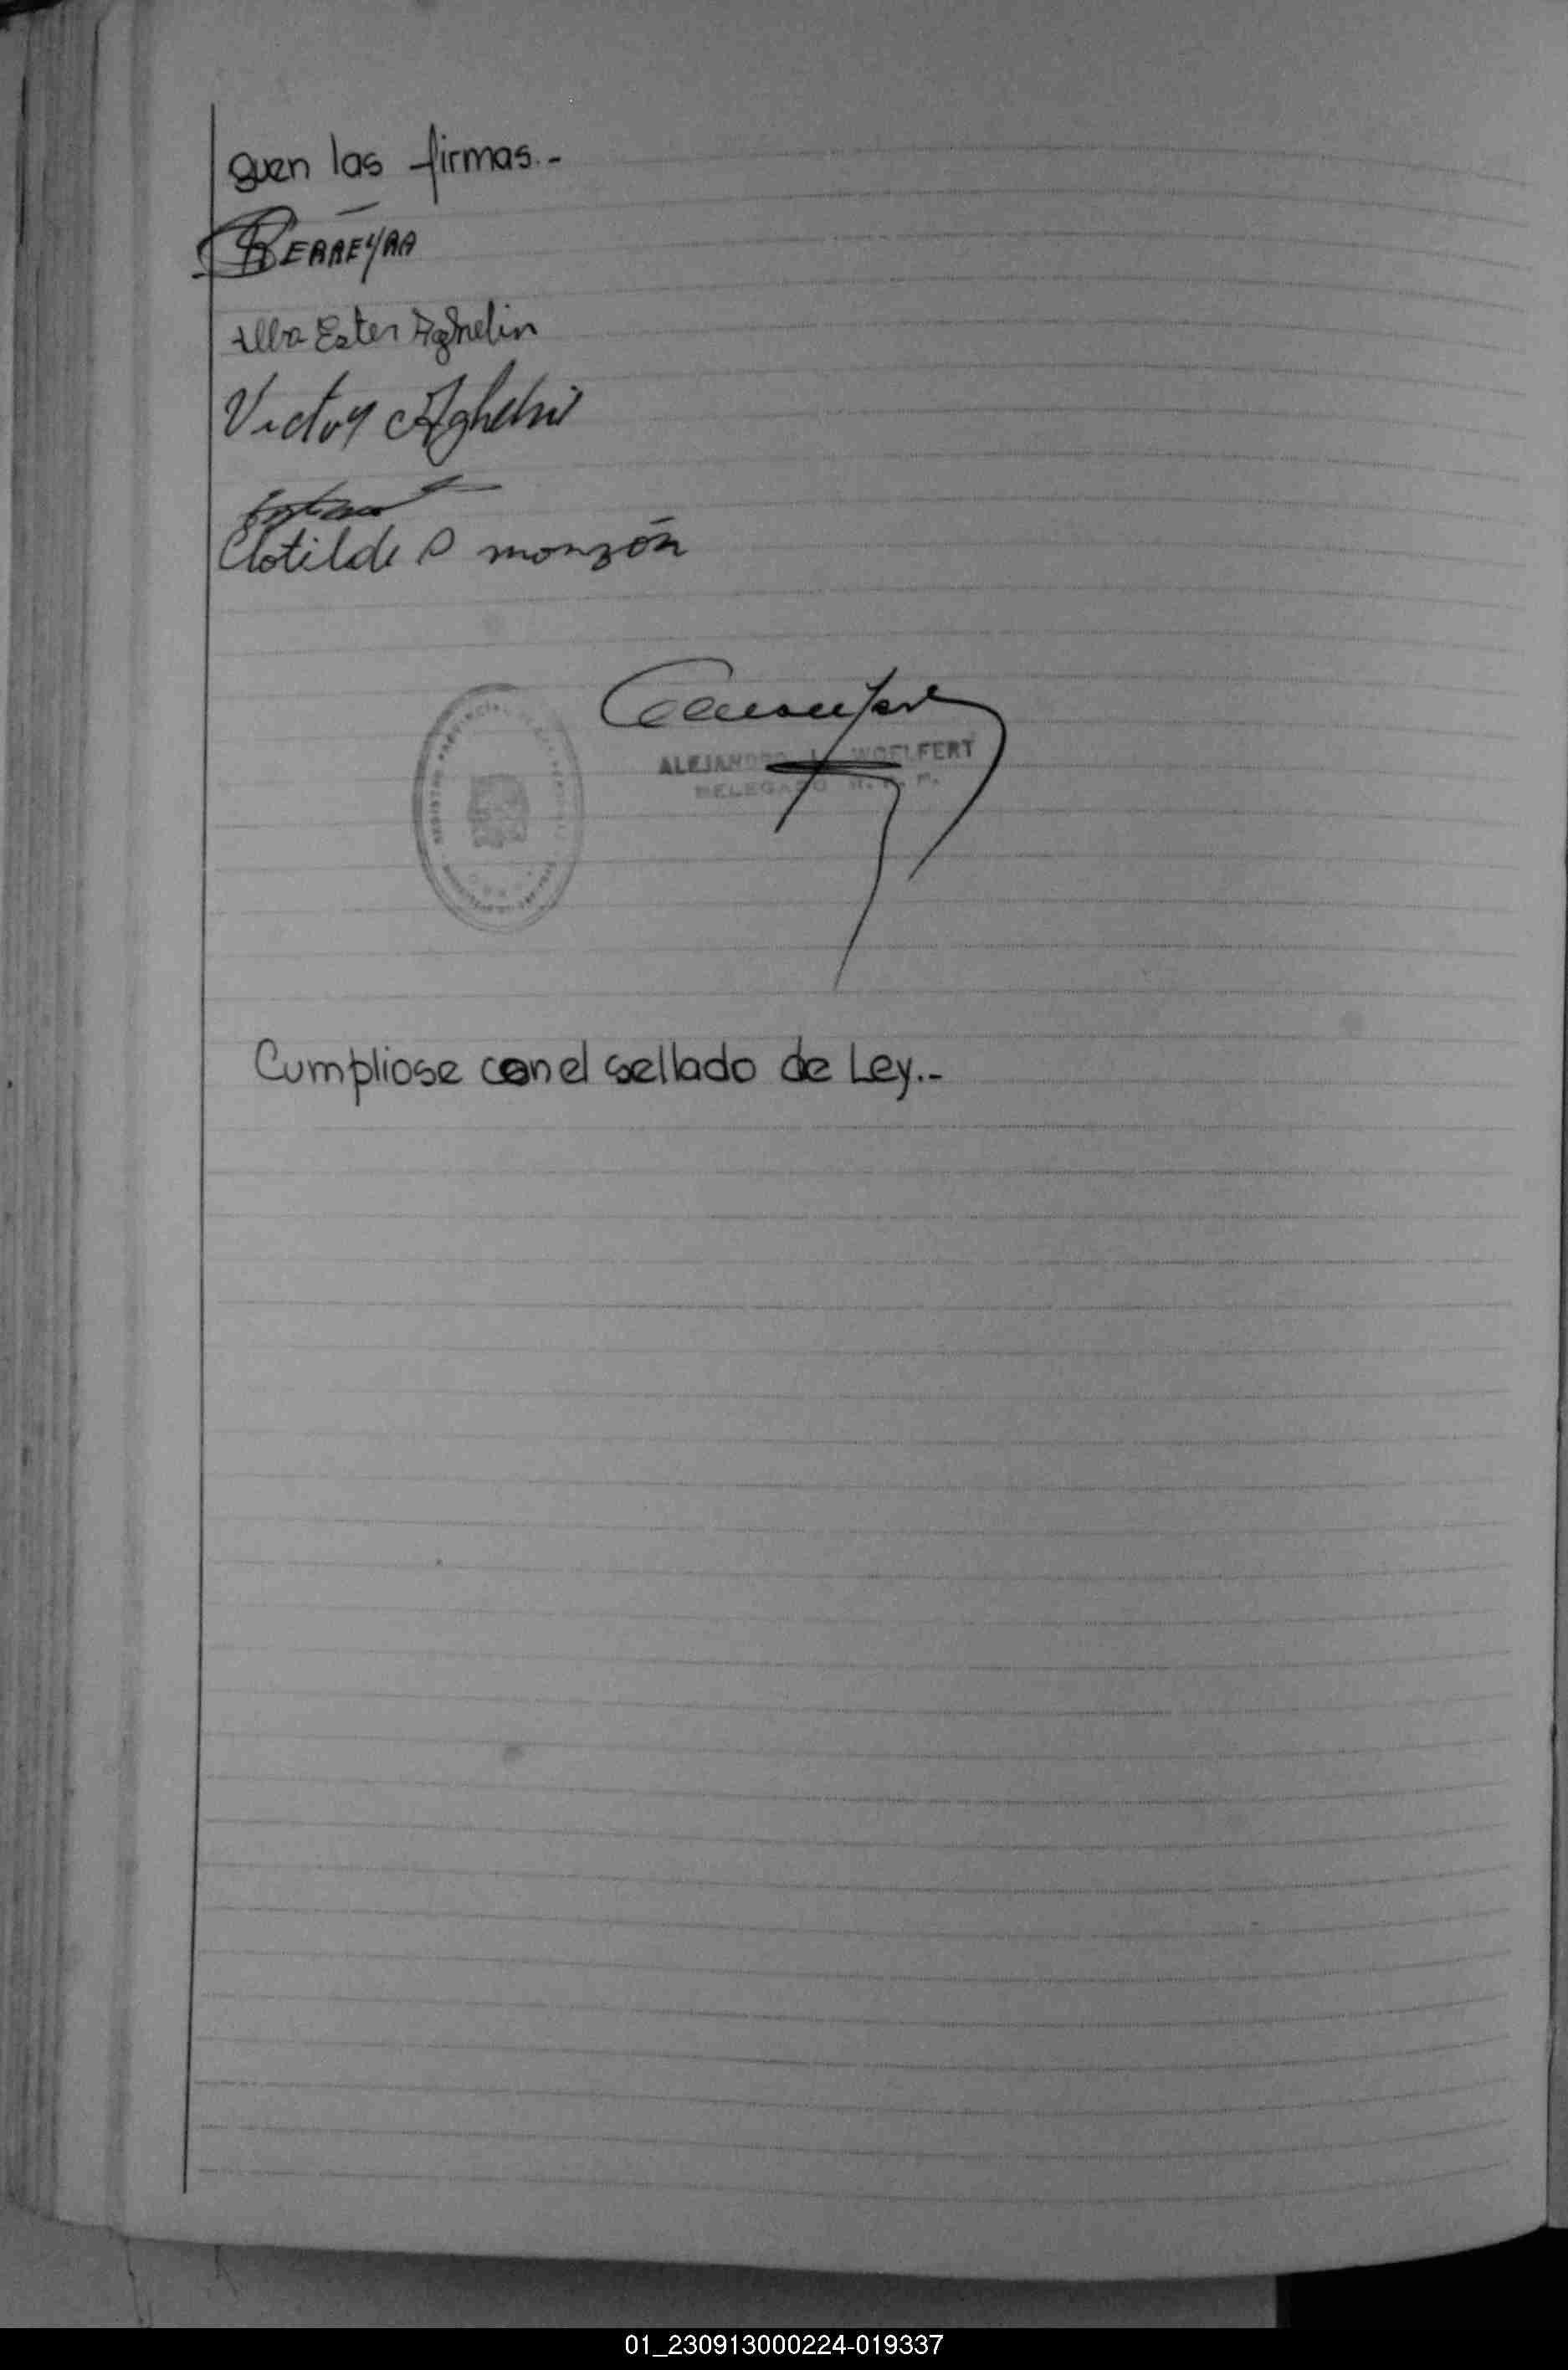 guen las firmas.-
FERREYRA
Alba Ester Aghelin
Victor Aghelin
Clotilde P monzón
ALEJANDRO L. WOELFERT
DELEGADO R. P.
REGISTRO PROVINCIAL
Cumpliose con el sellado de Ley.-
01_230913000224-019337